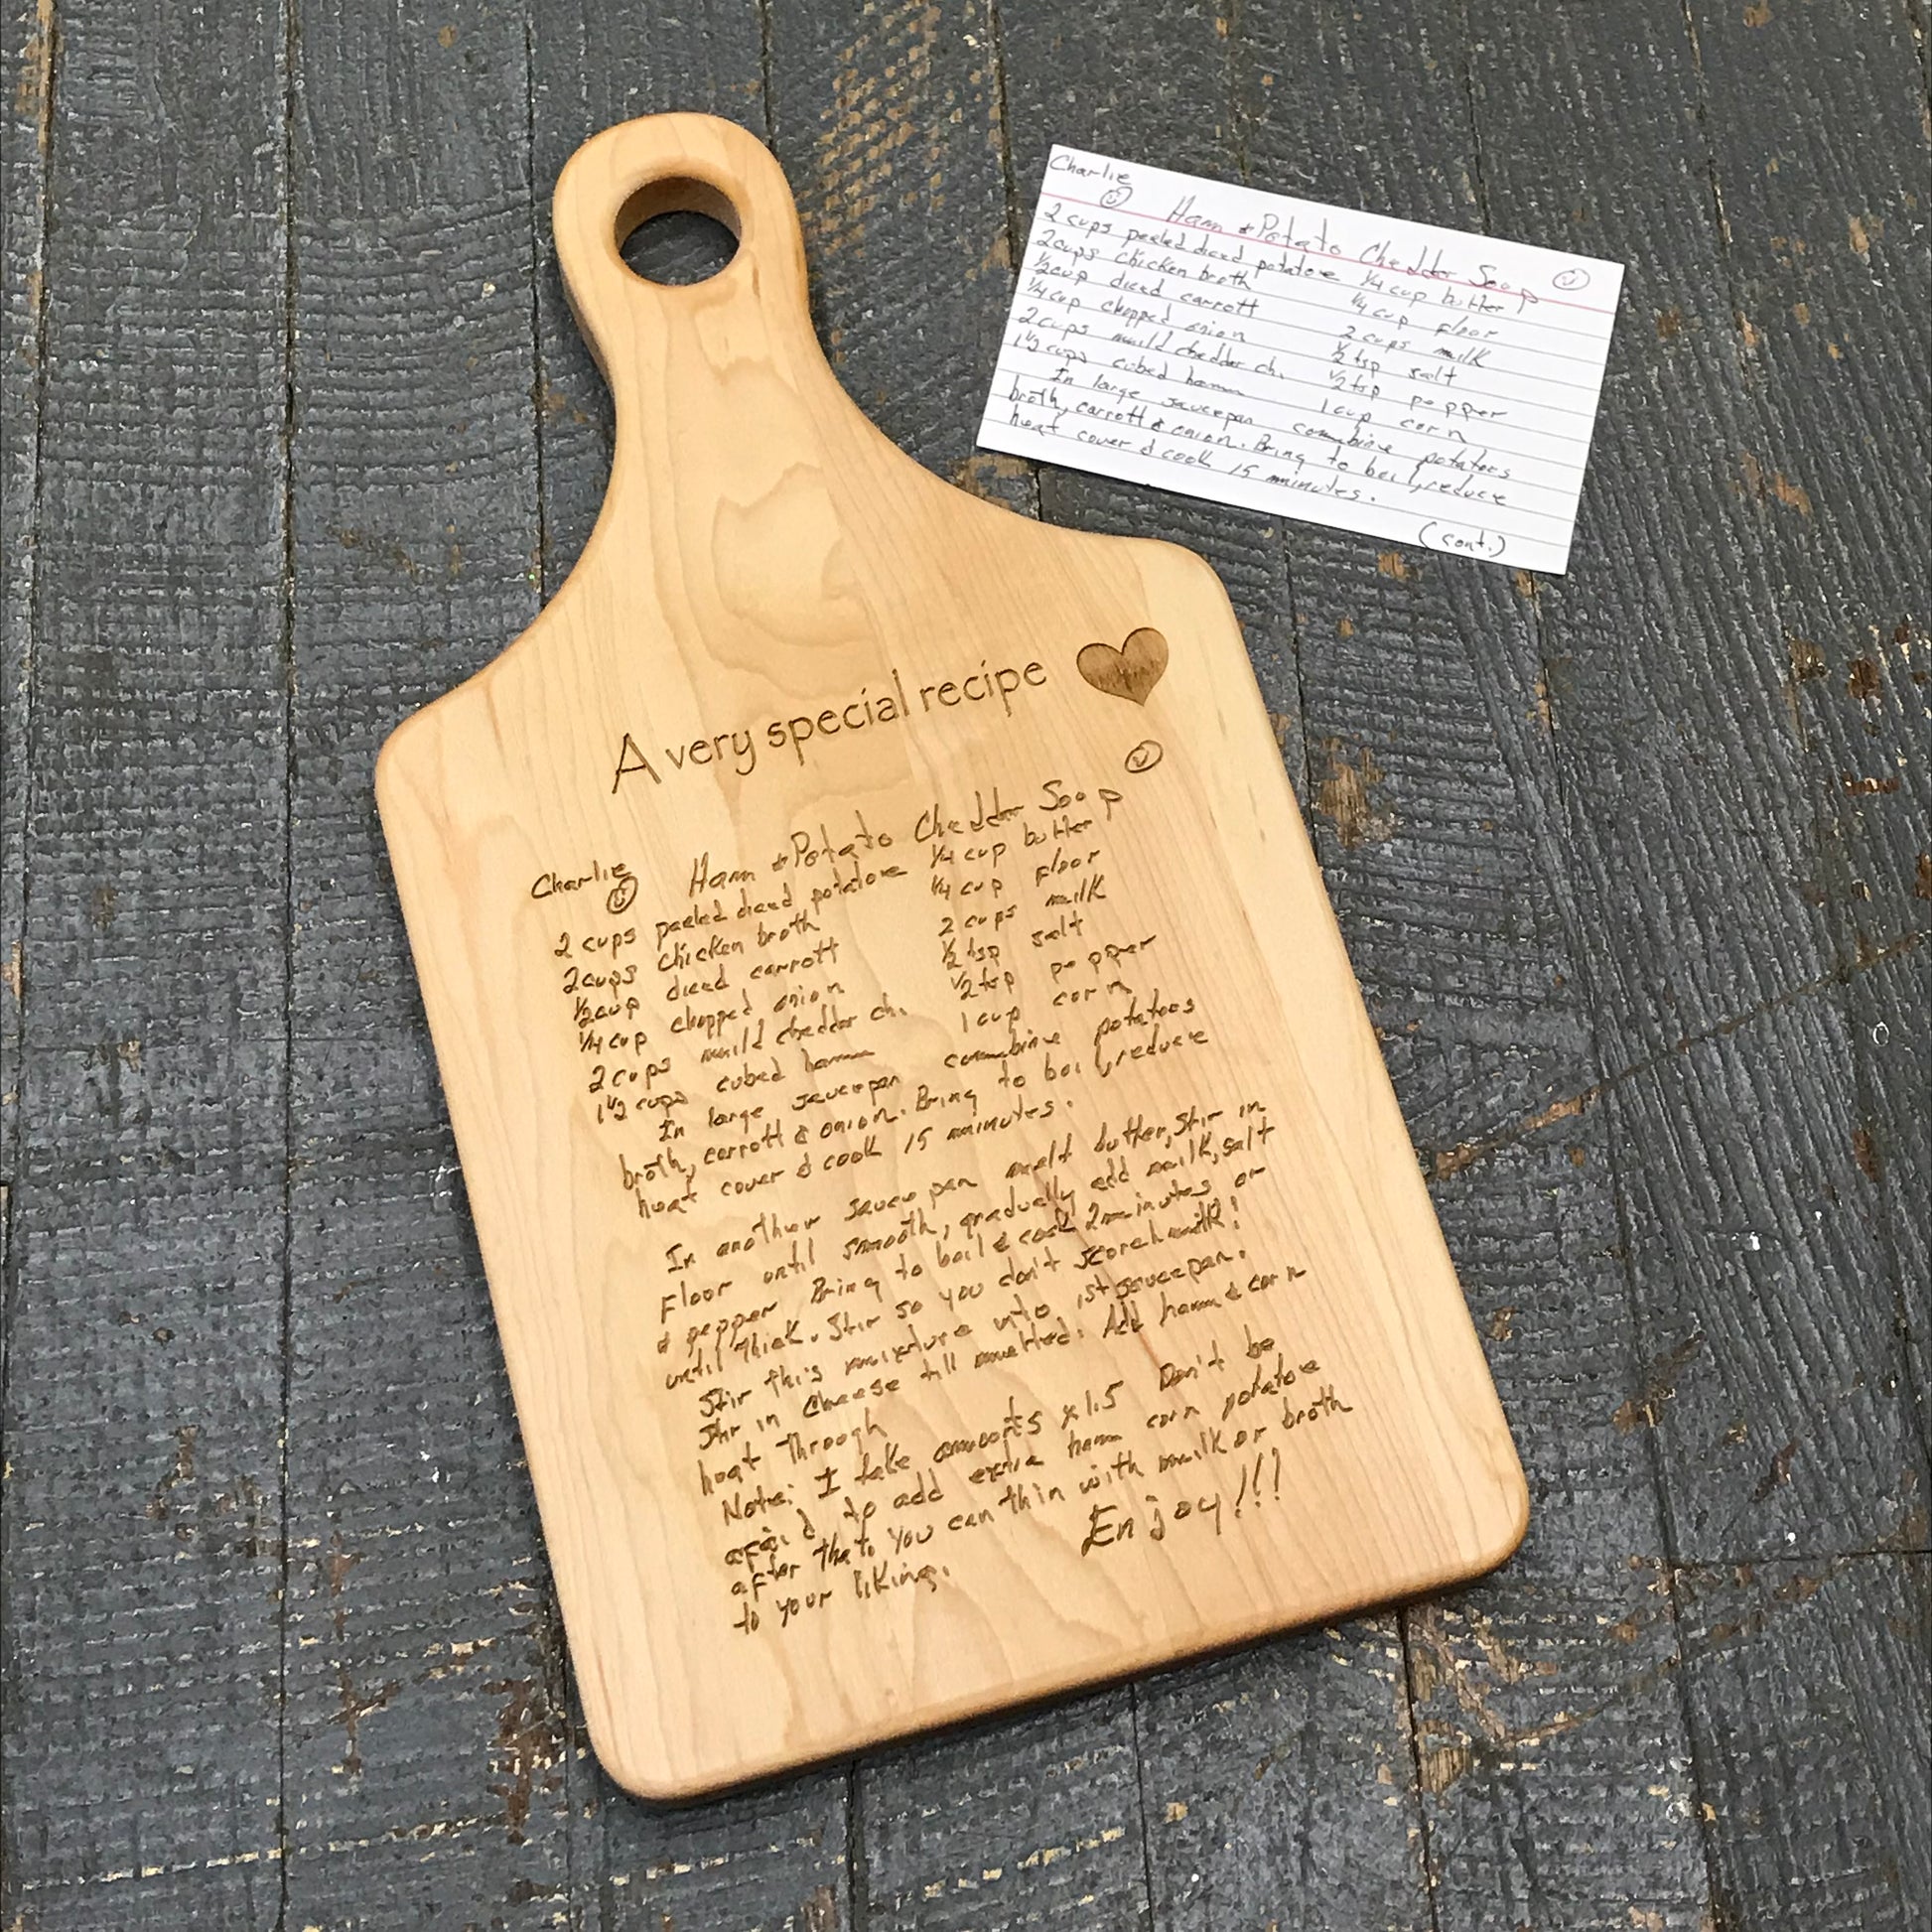 Charlie
Ham & Potato Chedder Soup
2 cups peeled diced potatoe 1/4 cup butter
2 cups chicken broth 1/4 cup floor
1/2 cup diced carrott 2 cups milk
1/4 cup chopped onion 1/2 tsp salt
2 cups mild chedder ch. 1/2 tsp pepper
1 1/2 cups cubed ham 1 cup corn
In large saucepan combine potatoes
broth, carrott & onion. Bring to boil, reduce
heat cover & cook 15 minutes.
(cont.)
A very special recipe
Charlie
Ham & Potato Chedder Soup
2 cups peeled diced potatoe 1/4 cup butter
2 cups chicken broth 1/4 cup floor
1/2 cup diced carrott 2 cups milk
1/4 cup chopped onion 1/2 tsp salt
2 cups mild chedder ch. 1/2 tsp pepper
1 1/2 cups cubed ham 1 cup corn
In large saucepan combine potatoes
broth, carrott & onion. Bring to boil, reduce
heat cover & cook 15 minutes.
In another sauce pan melt butter, stir in
floor until smooth, gradually add milk, salt
& pepper Bring to boil & cook 2 minutes or
until thick. Stir so you don't scorch milk!
Stir this mixture into 1st saucepan.
Stir in cheese till melted. Add ham & corn
heat through
Note: I take amounts x 1.5 Don't be
afaid to add extra ham corn potatoe
after that. You can thin with milk or broth
to your liking.
Enjoy!!!